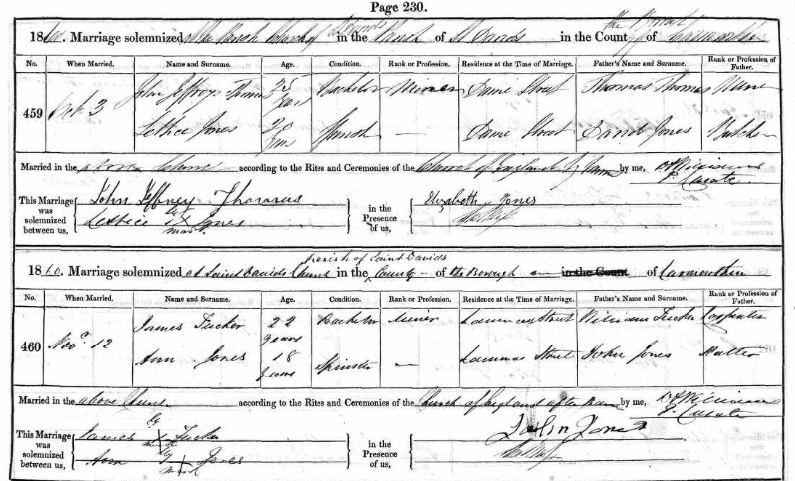 Page 230.
1860. Marriage solemnized in the Parish of St Davids in the County of Carmarthen
No. When Married. Name and Surname. Age. Condition. Rank or Profession. Residence at the Time of Marriage. Father's Name and Surname. Rank or Profession of Father.
459 Oct 3 John Jeffrey Thomas 25 Years Bachelor Miner Dame Street Thomas Thomas
Lettice Jones — Dame Street David Jones Butcher
Married in the above according to the Rites and Ceremonies of the Church of England by me,
P. Curate
This Marriage was solemnized between us, John Jeffrey Thomas
Lettice Jones mark
in the Presence of us, Elizabeth Jones
parish of Saint Davids
1860. Marriage solemnized at Saint Davids in the County of the Borough in the Count of Carmarthen
No. When Married. Name and Surname. Age. Condition. Rank or Profession. Residence at the Time of Marriage. Father's Name and Surname. Rank or Profession of Father.
460 Nov 12 James Tucker 22 years Bachelor Miner Lammas Street William Tucker Carpenter
Ann Jones 18 years Spinster — Lammas Street John Jones Hatter
Married in the above according to the Rites and Ceremonies of the Church of England after by me,
P. Curate
This Marriage was solemnized between us, James X Tucker
Ann X Jones
in the Presence of us, John Jones